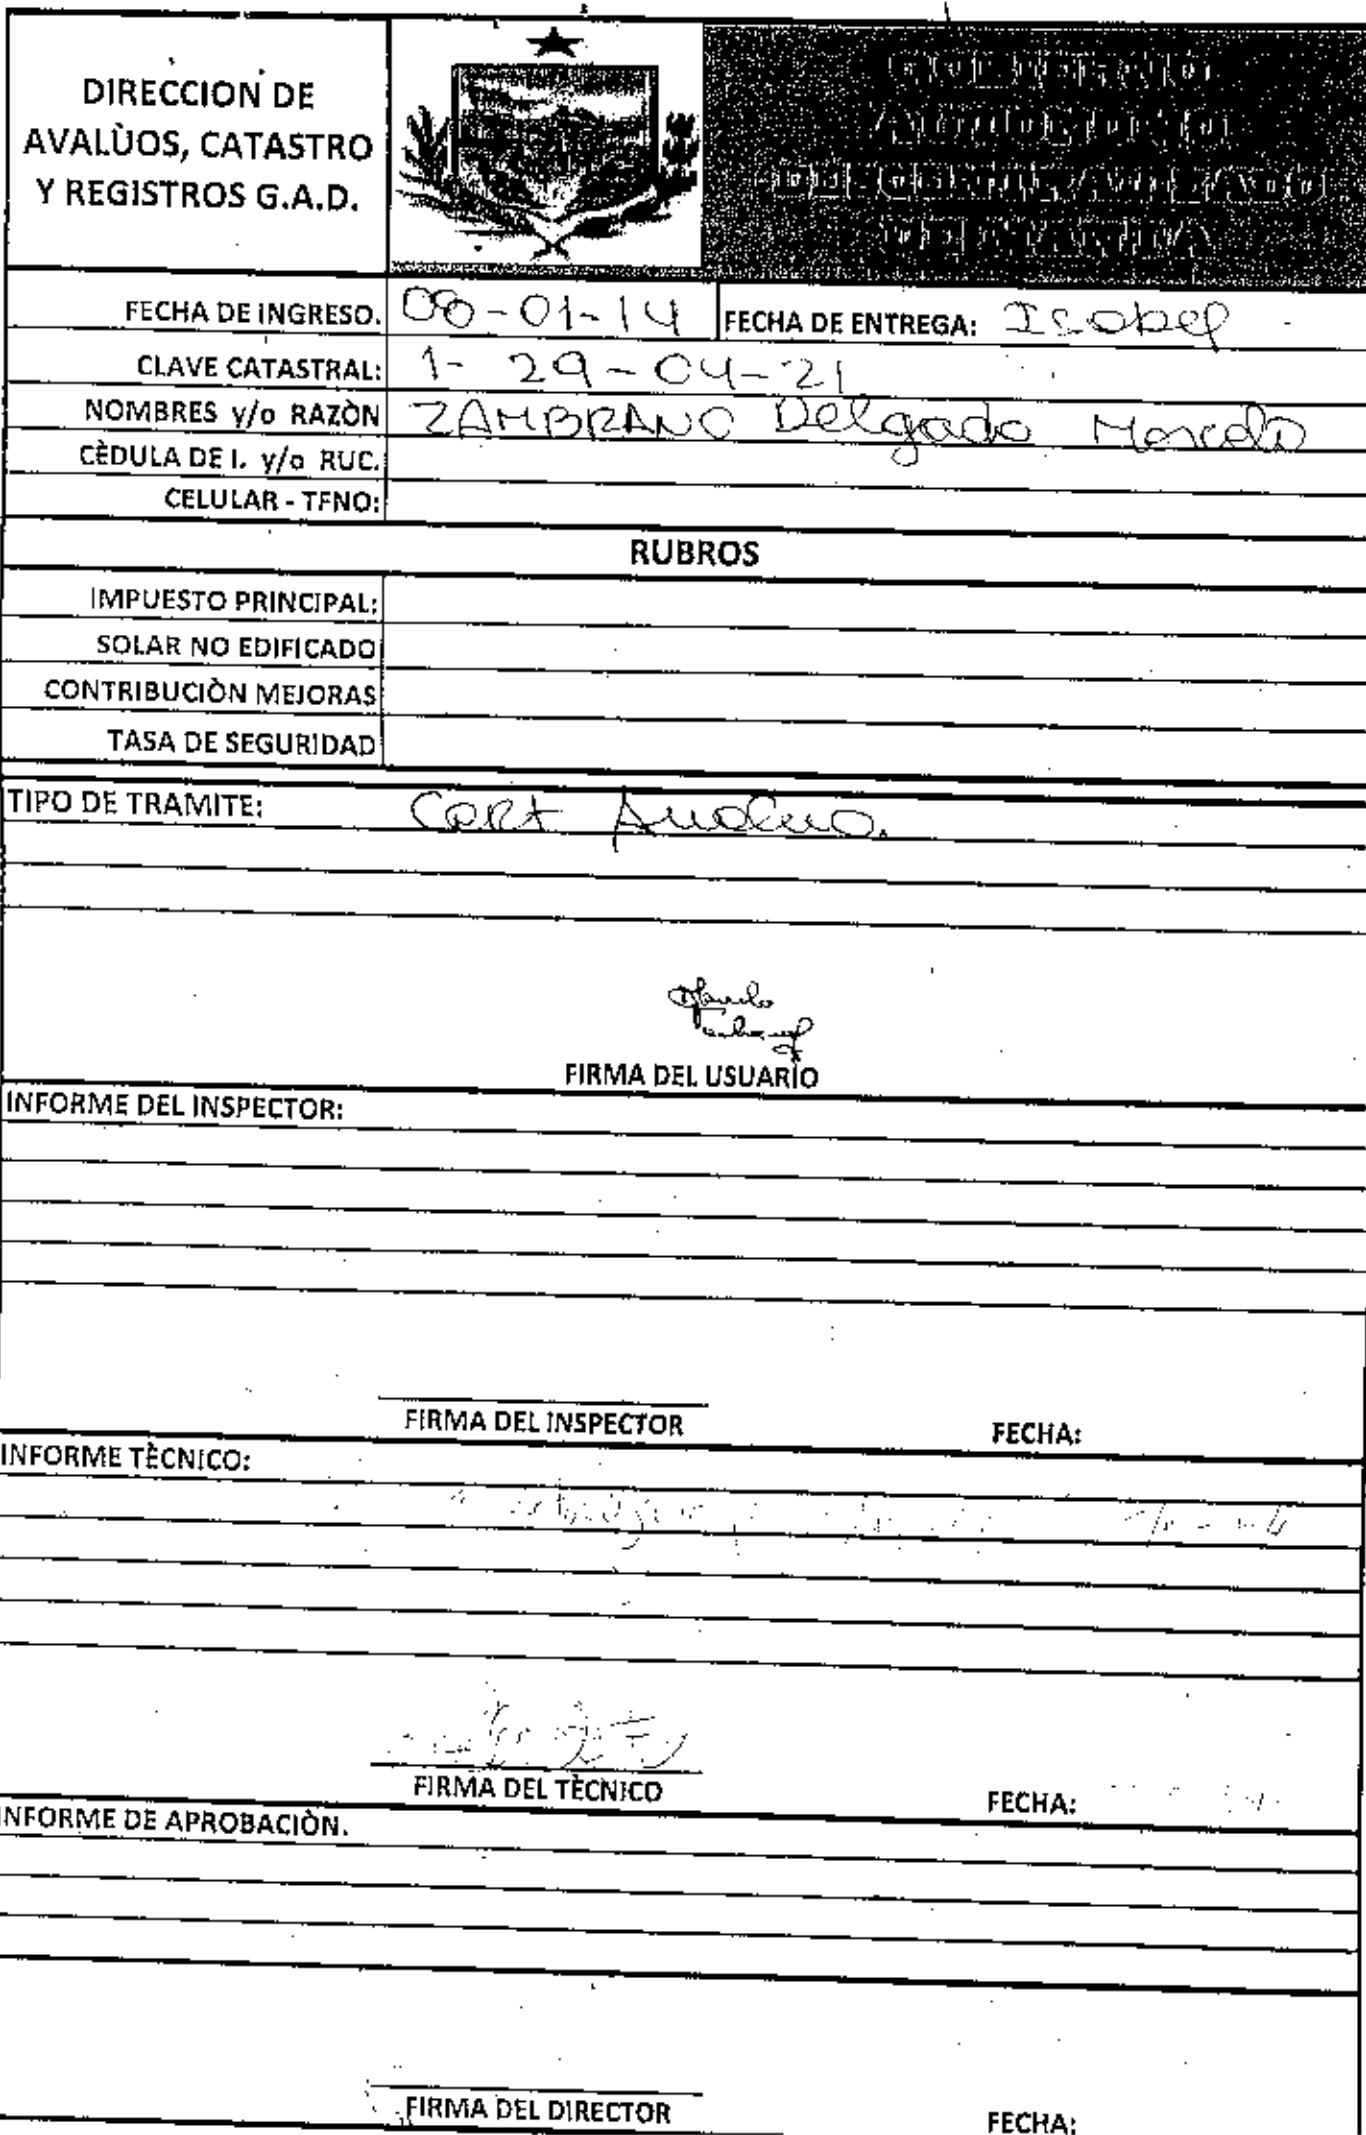 DIRECCION DE
AVALÙOS, CATASTRO
Y REGISTROS G.A.D.
GOBIERNO
AUTONOMO
DESCENTRALIZADO
DE MANTA
FECHA DE INGRESO. 08-01-14 FECHA DE ENTREGA: Isabel
CLAVE CATASTRAL: 1- 29-04-21
NOMBRES y/o RAZÒN ZAMBRANO Delgado
CÈDULA DE I. y/o RUC.
CELULAR - TFNO:
RUBROS
IMPUESTO PRINCIPAL:
SOLAR NO EDIFICADO
CONTRIBUCIÒN MEJORAS
TASA DE SEGURIDAD
TIPO DE TRAMITE: Cert
FIRMA DEL USUARIO
INFORME DEL INSPECTOR:
FIRMA DEL INSPECTOR FECHA:
INFORME TÈCNICO:
FIRMA DEL TÈCNICO FECHA:
INFORME DE APROBACIÒN.
FIRMA DEL DIRECTOR FECHA: